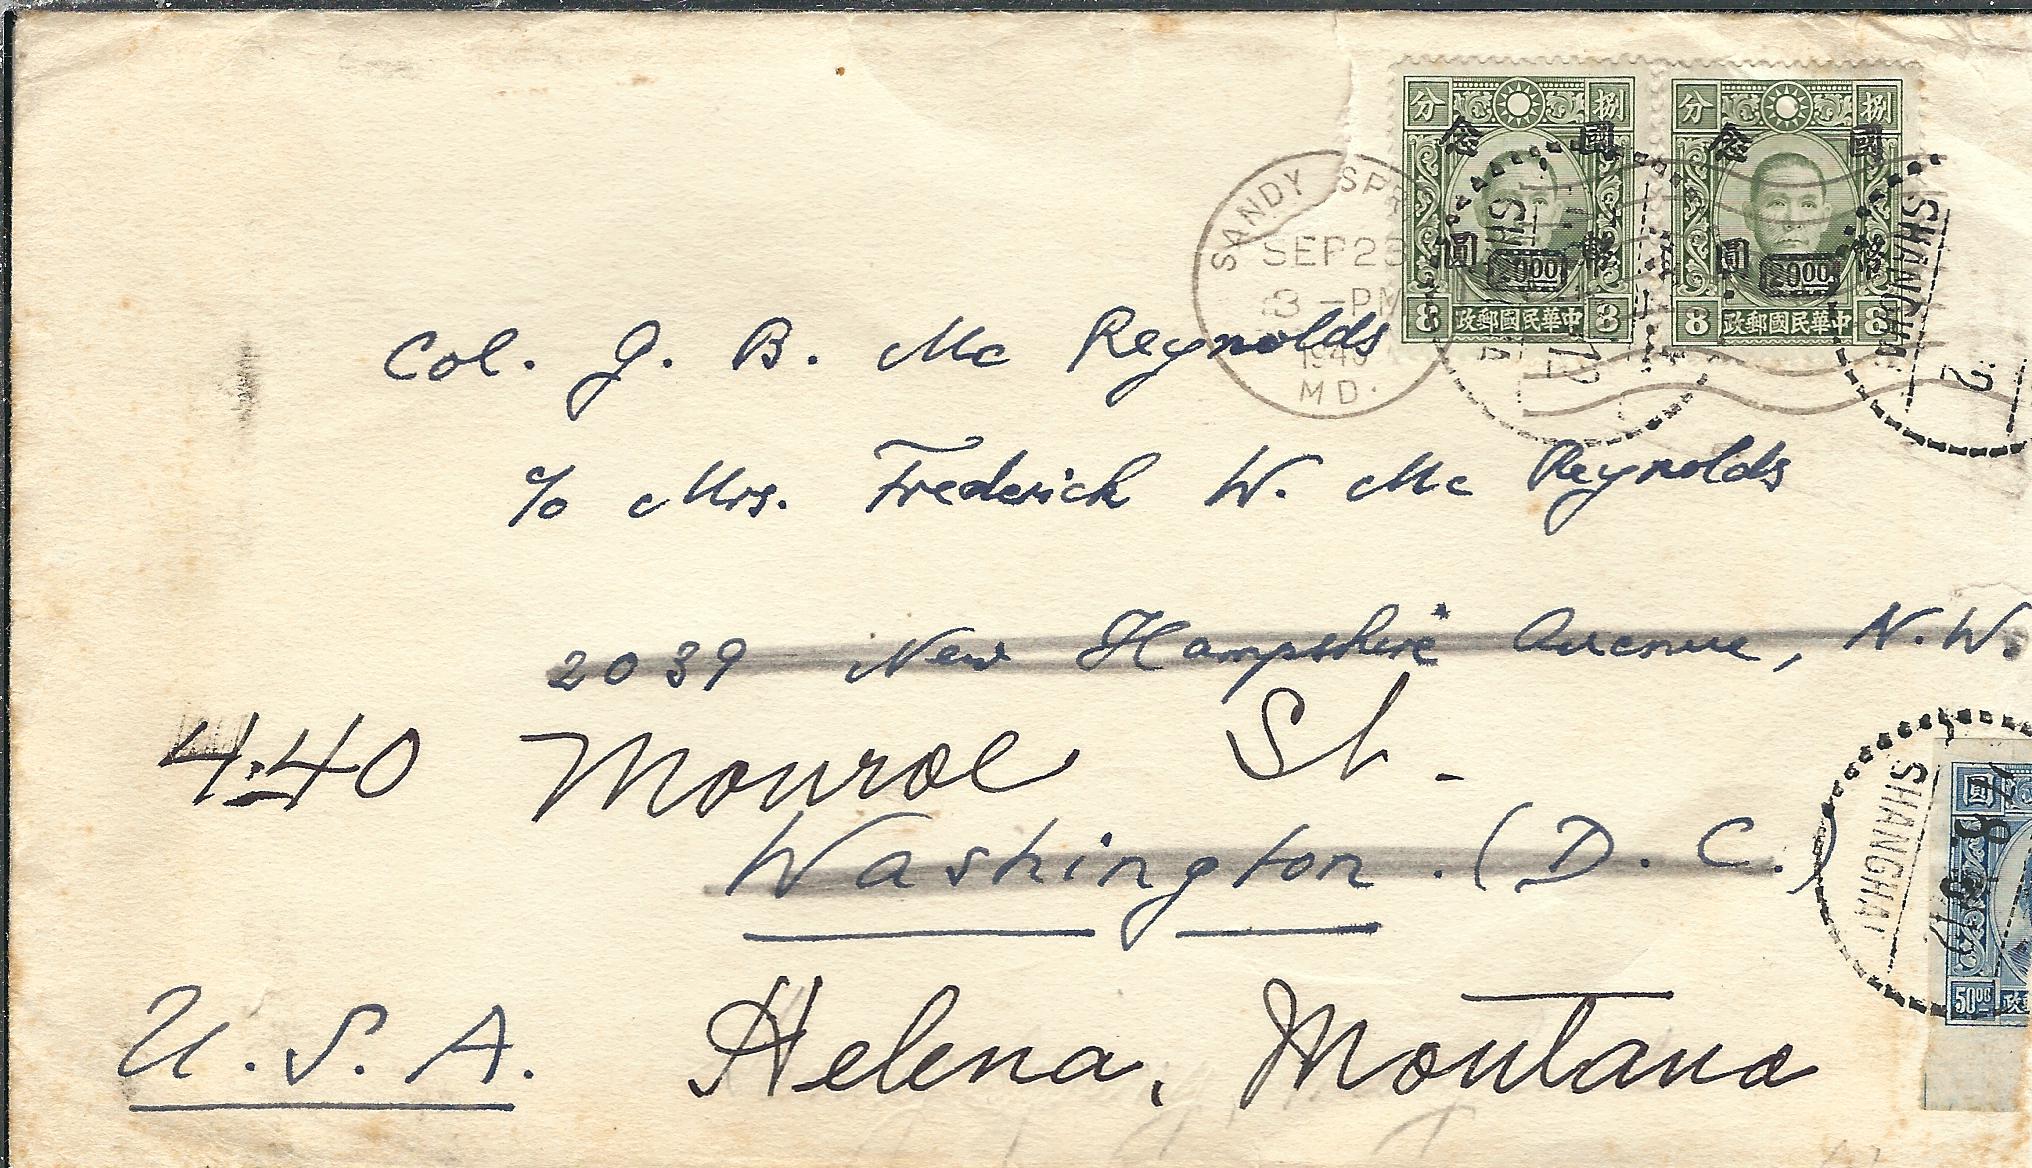 分 捌
國 幣
圓 20.00
8 政郵國民華中 8
分 捌
國 幣
圓 20.00
8 政郵國民華中 8
SANDY SPR
SEP 23
3 -PM
MD.
SHANGHA
Col. J. B. Mc Reynolds
c/o Mrs. Frederick W. Mc Reynolds
2039 New Hampshire Avenue, N.W.
440 Monroe St.
Washington. (D. C.)
SHANGHAI
圓
50 00
政
U. S. A. Helena, Montana